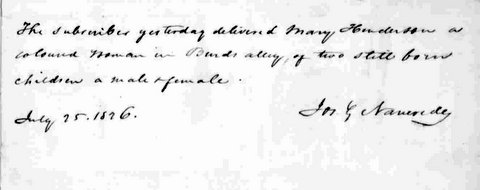 The subscriber yesterday delivered Mary Henderson a
coloured woman in Burds alley, of two still born
children a male & female.
July 25. 1826.
Jos. G